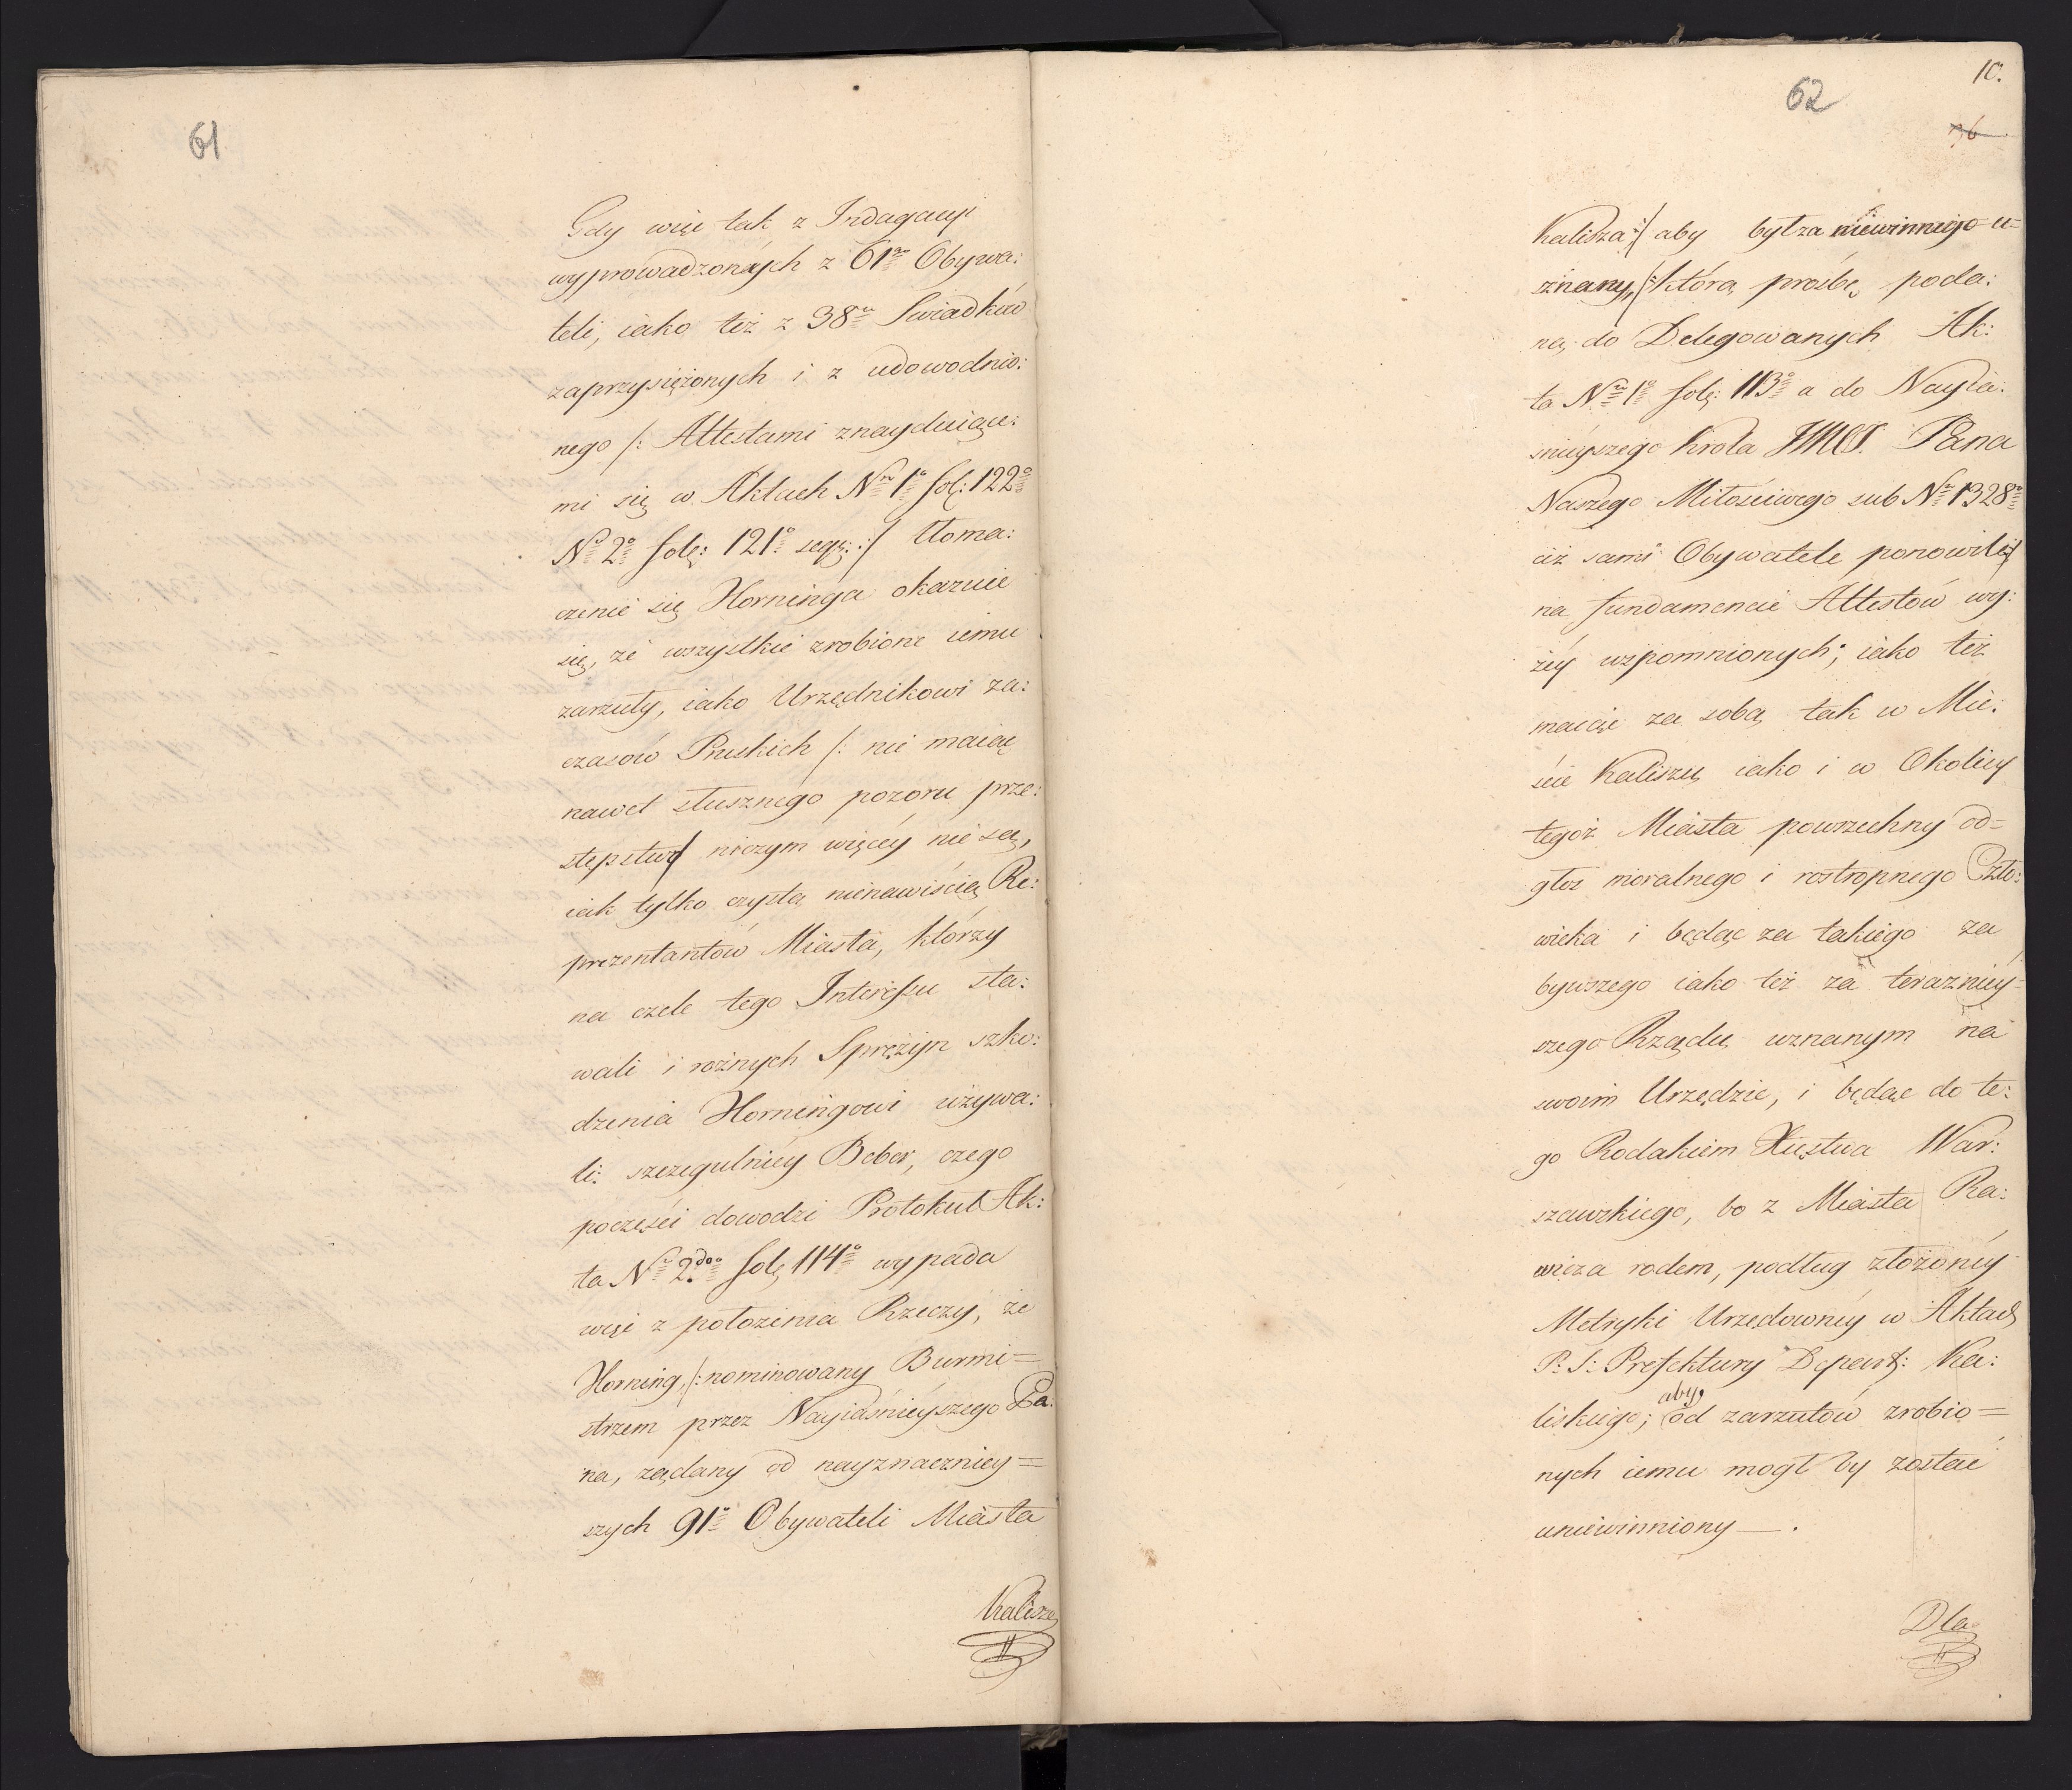 61
Gdy więc tak z Indagacyi
wyprowadzonéych z 61.° Obywa:
teli, iako też z 38.° Swiadków
zaprzysiężonych i z udowodnio:
nego /: Attestami znayduiące:
mi się w Aktach N.° 1.° fol: 122.°
N.° 2.° fol: 121.° seqq: :/ tłoma:
czenie się Horninga okazuie
się, że wszystkie zrobione iemu
zarzuty, iako Urzędnikowi za:
czasów Pruskich /: nie maiąc
nawet słusznego pozoru prze:
stępstw:/ niczym więcéy nie są,
iak tylko czystą nienawiścią Re:
prezentantów Miasta, którzy
na czele tego Interessu sta:
wali i rożnych Sprężyn szko:
dzenia Horningowi używa:
li: szczegulniéy Beber, czego
poczęsći dowodzi Protokuł Ak:
ta N.° 2.do fol: 114.° wypada
więc z położenia Rzeczy, że
Horning, /: nominowany Burmi=
strzem przez Nayiaśniéyszego Pa:
na, żądany od nayznaczniey=
szych 91.° Obywateli Miasta
Kalisza
62
10.
Kalisza :/ aby był za niewinnego u=
znany, /: którą prośbę poda:
ną do Delegowanych Ak:
ta N.° 1.° fol: 113.° a do Nayia:
sniéyszego Króla JMCI. Pana
Naszego Miłościwego sub N.° 1328.°
ciż sami Obywatele ponowili :/
na fundamencie Attestów wy:
żéy wzpomnionych; iako też
maiąc za sobą tak w Mie:
ście Kaliszu iako i w Okolicy
tegoż Miasta powszechny od=
głos moralnego i rostropnego Czło:
wieka i będąc za takiego za
bywszego iako też za terazniéy=
szego Rządu uznanym na
swoim Urzędzie, i będąc do te:
go Rodakiem Xięstwa War:
szawskiego, bo z Miasta Ra:
wicza rodem, podług złożonéy
Metryki Urzędownéy w Aktach
P. S: Prefektury Depart: Ka:
liskiego; aby od zarzutów zrobio=
nych iemu mogł by zostać
uniewinniony — .
Dla